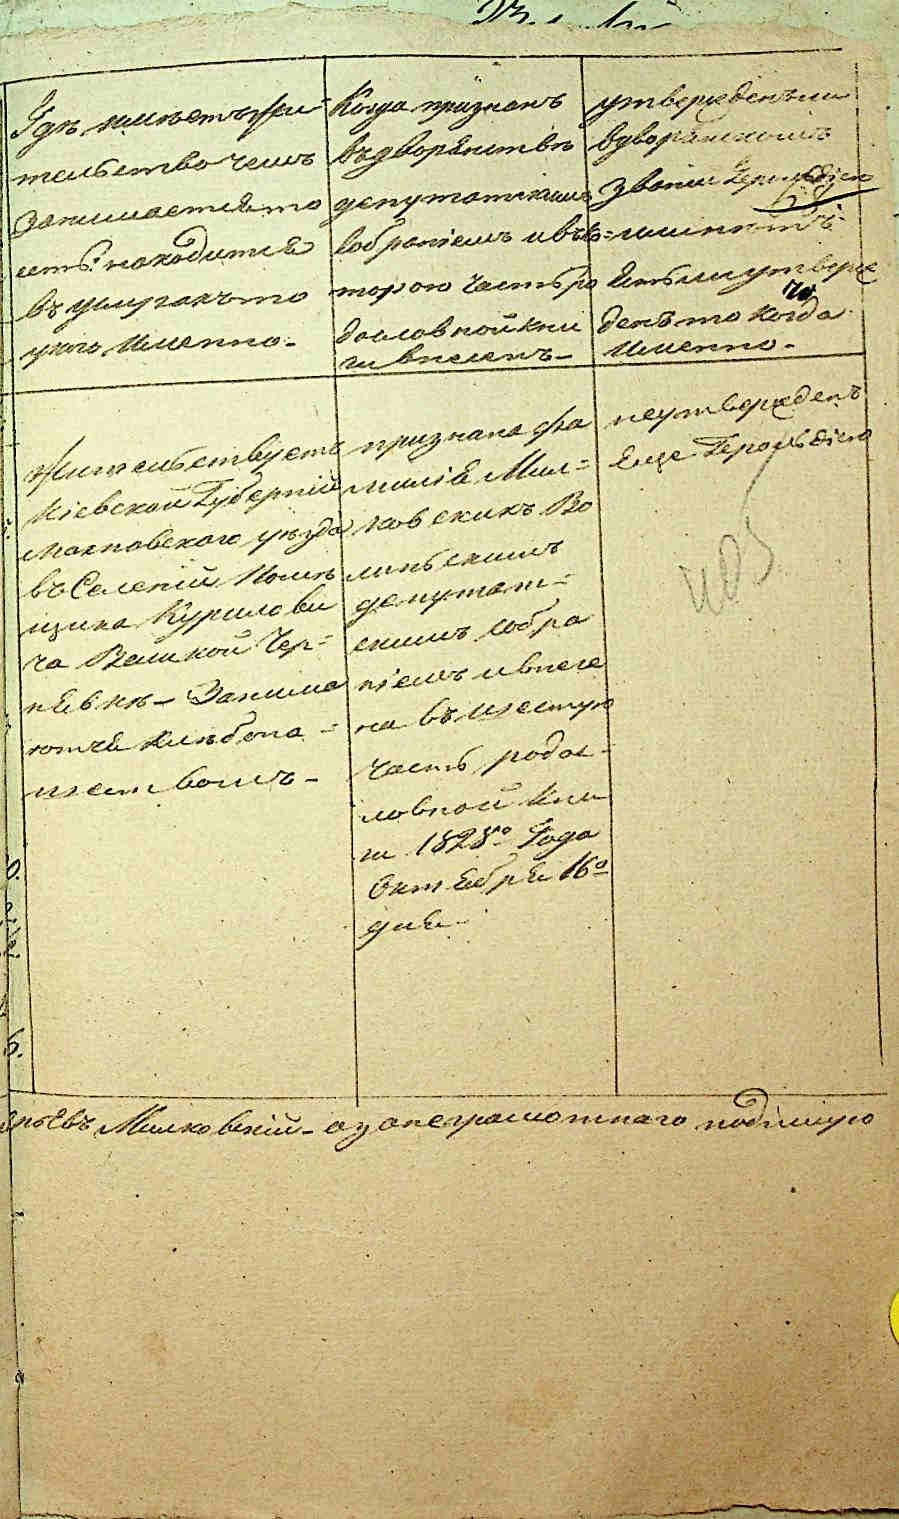 Гдѣ имѣетъ жи-
тельство чемъ
занимается то
есть: находится
въ
уюго именно.-
Когда признанъ
въ дворянствѣ
депутатскимъ
собраніемъ и въ ко-
торою часть ро
дословной кни
ги внесенъ-
утвержденъ ли
в дворянскомъ
званіи Герольдіею
68
Есть ли утверж
денъ то когда
именно.-
Жительствуетъ
Кіевской Губерніи
Махновскаго уѣзда
въ Селеніи помѣ
щика Курилови
ча Великой Чер-
нявкѣ- Занима
ются хлѣбопа-
шествомъ-
признана фа
милія Мил-
ковскихъ Во
лынскимъ
депутат-
скимъ собра
ніемъ и внесе
на въ шестую
часть родос-
ловной кни
ги 1828го Года
Октября 16го
дня.
неутвержденъ
Еще Герольдіею
Милковскій- а за неграмотнаго